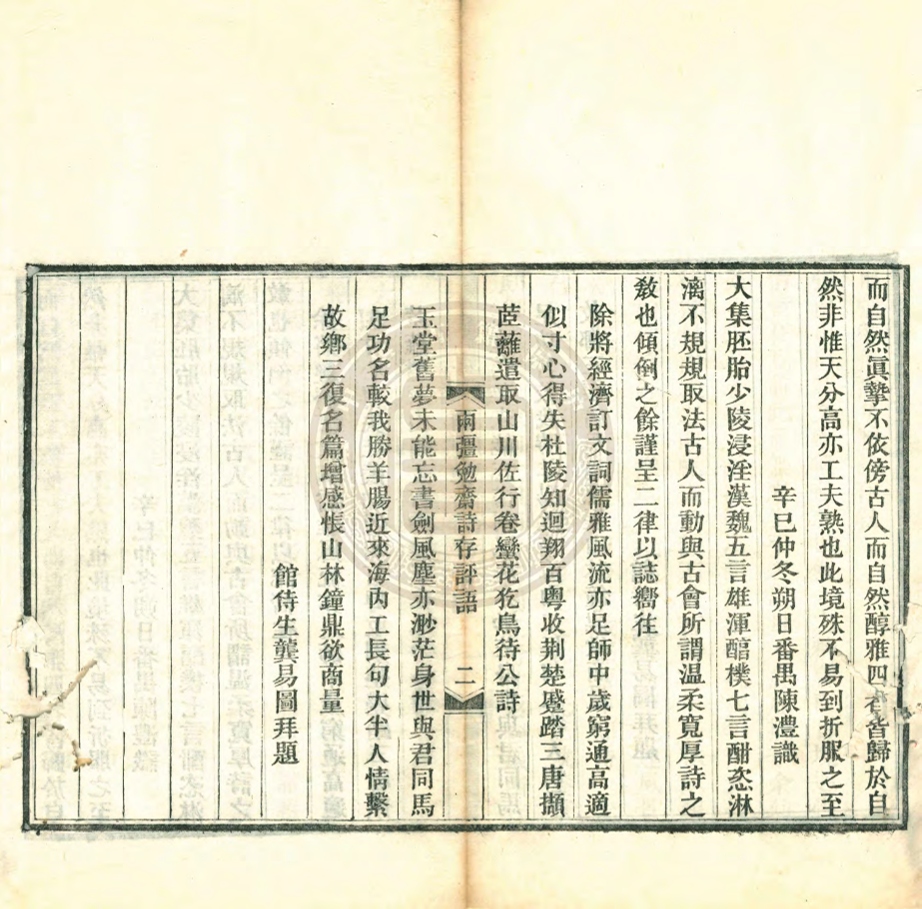 而自然眞摯不依傍古人而自然醇雅四者皆歸於自
然非惟天分高亦工夫熟也此境殊不易到折服之至
辛巳仲冬朔日番禺陳澧識
大集胚胎少陵浸淫漢魏五言雄渾醇樸七言酣恣淋
漓不規規取法古人而動與古會所謂温柔寬厚詩之
敎也傾倒之餘謹呈二律以誌嚮往
除將經濟訂文詞儒雅風流亦足師中歲窮通高適
似寸心得失杜陵知迴翔百粤收荆楚蹙踏三唐擷
茝蘺遣取山川佐行卷蠻花犵鳥待公詩
兩彊勉齋詩存評語
二
玉堂舊夢未能忘書劍風塵亦渺茫身世與君同馬
足功名較我勝羊腸近來海內工長句大半人情繫
故鄉三復名篇增感悵山林鐘鼎欲商量
館侍生龔易圖拜題